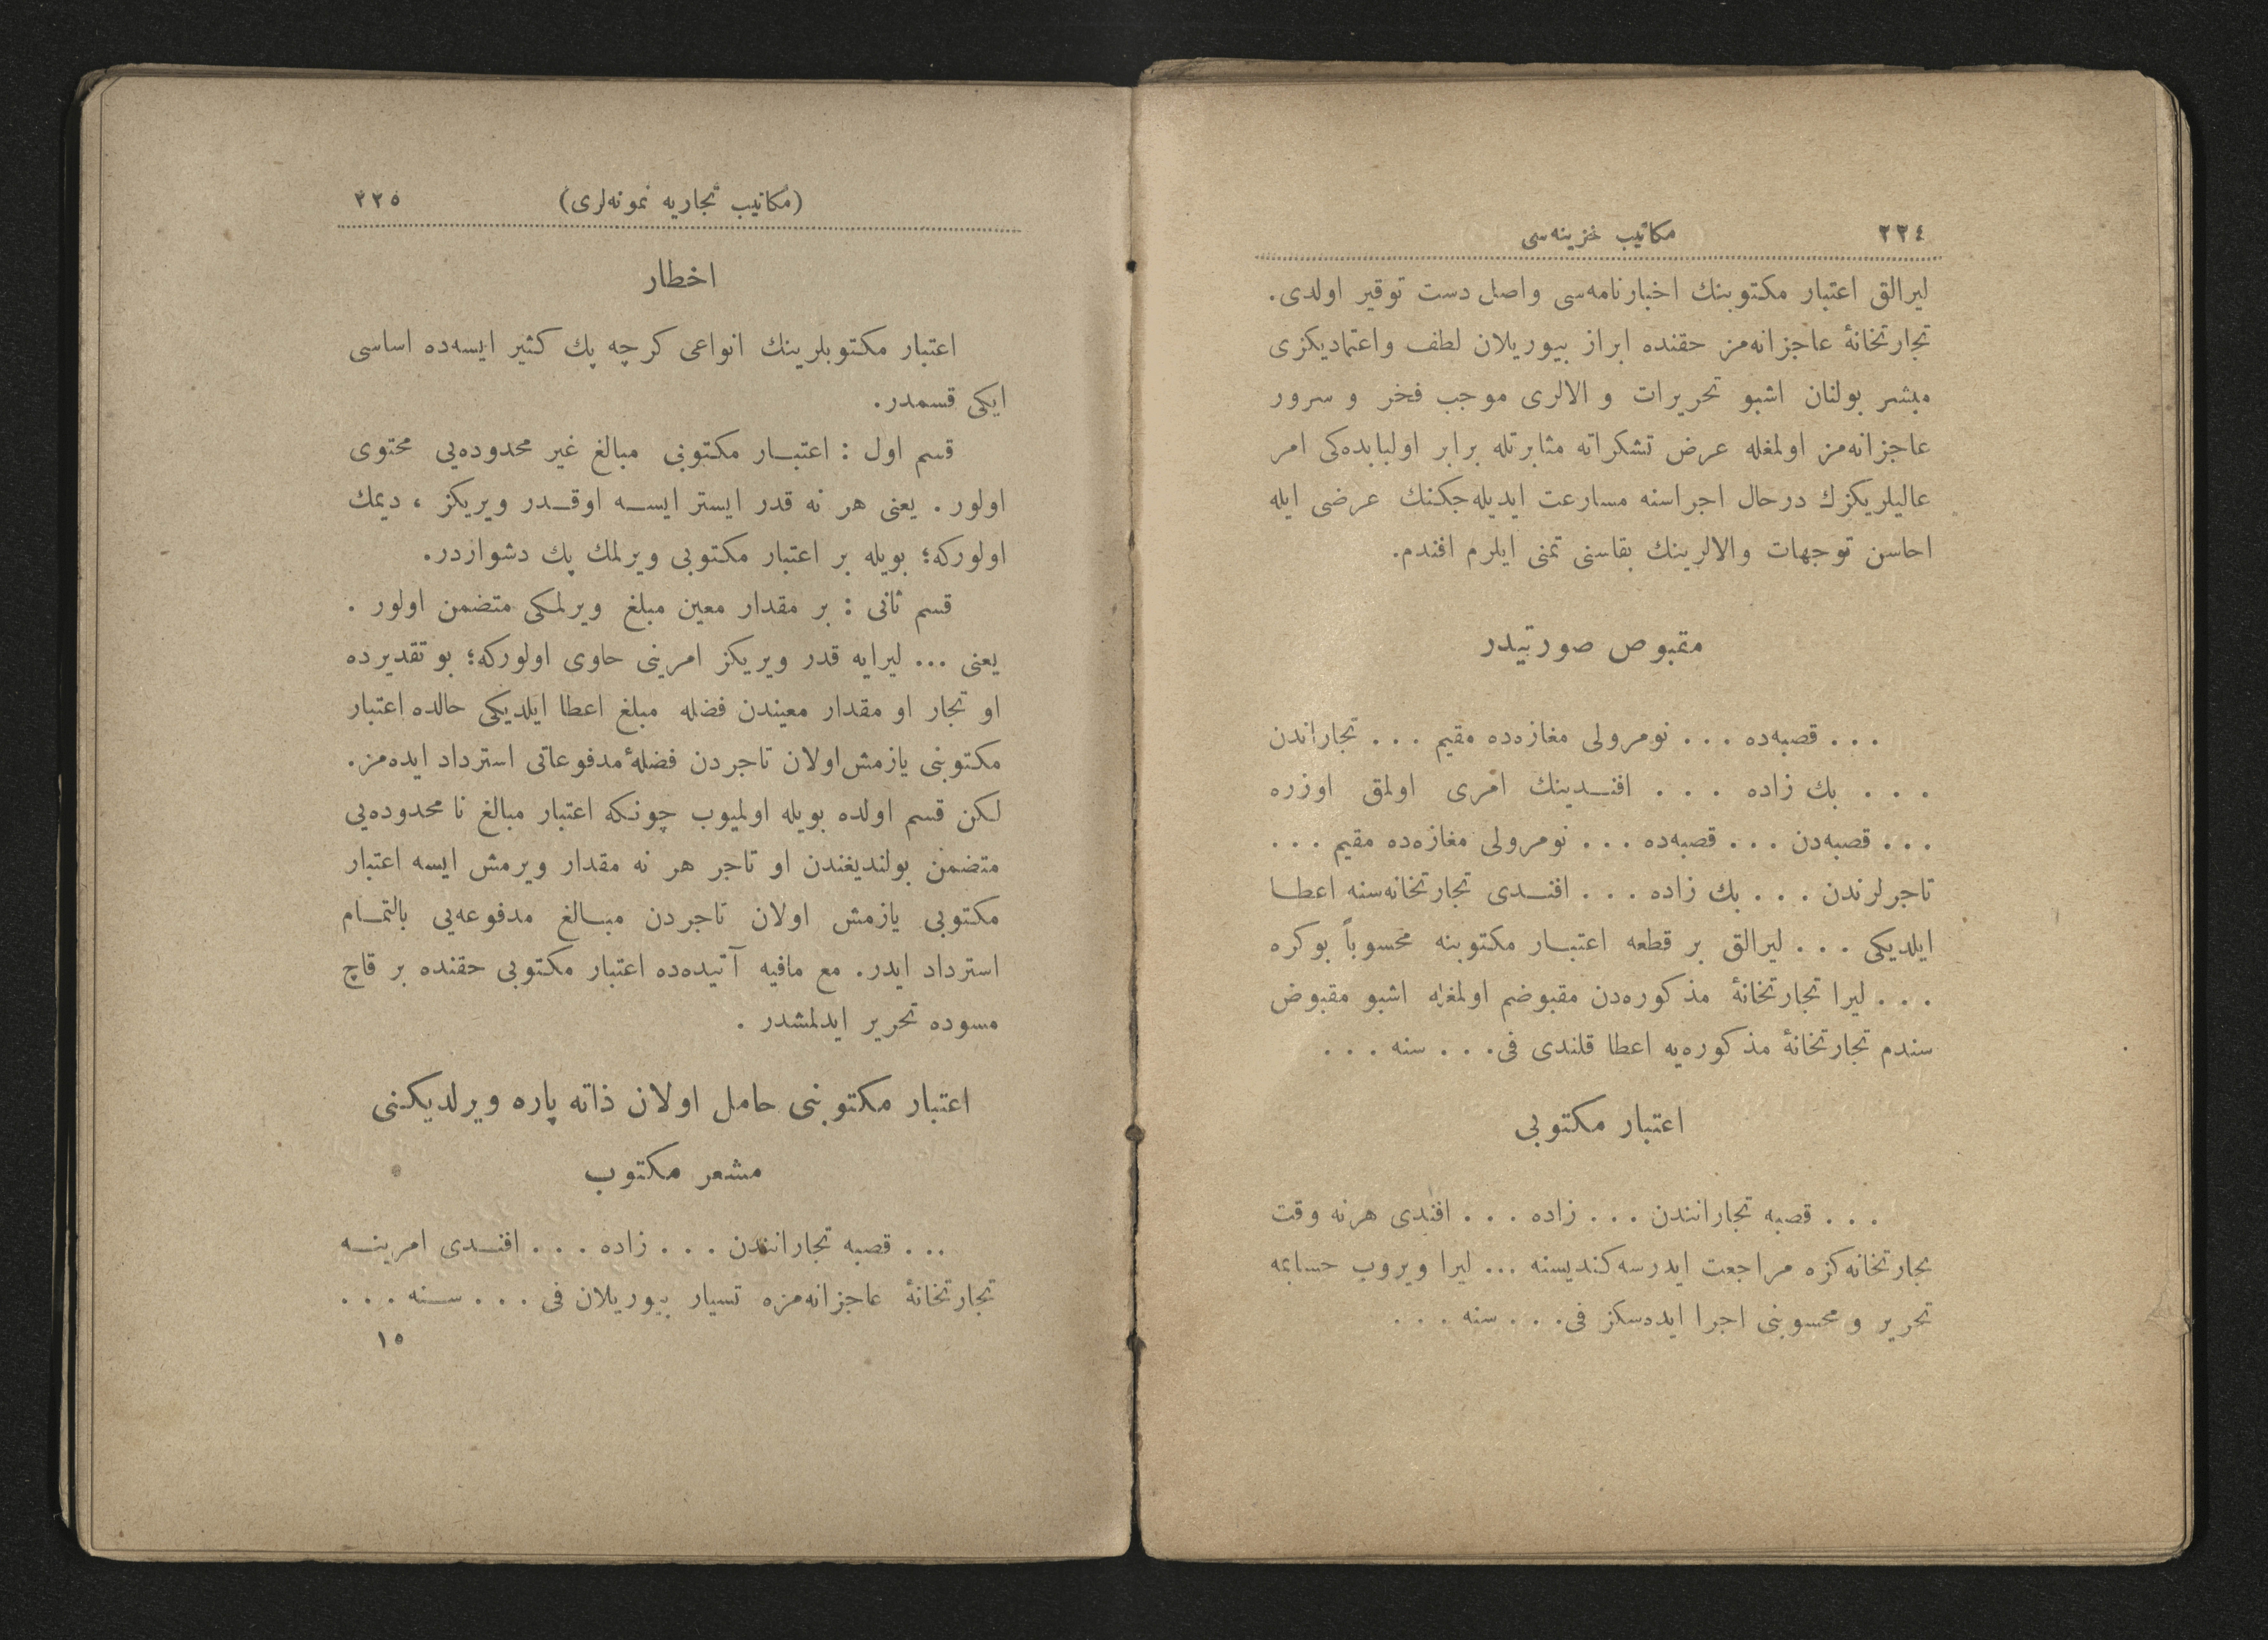 ٢٢٤ مكاتيب خزينه‌سى
ليرالق اعتبار مكتوبنك اخبارنامه‌سى واصل دست توقير اولدى.
تجارتخانهٔ عاجزانه‌مز حقنده ابراز بيوريلان لطف واعتماديكزى
مبشر بولنان اشبو تحريرات و الالرى موجب فخر و سرور
عاجزانه‌مز اولمغله عرض تشكراته مثابرتله برابر اولبابده‌كى امر
عاليلريكزك درحال اجراسنه مسارعت ايديله‌جكنك عرضى ايله
احاسن توجهات والالرينك بقاسنى تمنى ايلرم افندم.
مقبوض صورتيدر
... قصبه‌ده ... نومرولى مغازه‌ده مقيم ... تجاراندن
... بك زاده ... افنـدينك امرى اولمق اوزره
... قصبه‌دن ... قصبه‌ده ... نومرولى مغازه‌ده مقيم ...
تاجرلرندن ... بك زاده ... افنـدى تجارتخانه‌سنه اعطـا
ايلديكى ... ليرالق بر قطعه اعتبـار مكتوبنه محسوباً بوكره
... ليرا تجارتخانهٔ مذكوره‌دن مقبوضم اولمغله اشبو مقبوض
سندم تجارتخانهٔ مذكوره‌يه اعطا قلندى فى... سنه ...
اعتبار مكتوبى
... قصبه تجارانندن ... زاده ... افندى هرنه وقت
تجارتخانه‌كزه مراجعت ايدرسه كنديسنه ... ليرا ويروب حسابمه
تحرير و محسوبنى اجرا ايده‌سكز فى... سنه ...
(مكاتيب تجاريه نمونه‌لرى) ٢٢٥
اخطار
اعتبار مكتوبلرينك انواعى كرچه پك كثير ايسه‌ده اساسى
ايكى قسمدر.
قسم اول : اعتبـار مكتوبنى مبالغ غير محدوده‌يى محتوى
اولور . يعنى هر نه قدر ايستر ايسـه اوقـدر ويريكز ، ديمك
اولوركه؛ بويله بر اعتبار مكتوبى ويرلمك پك دشواردر.
قسم ثانى : بر مقدار معين مبلغ ويرلمكى متضمن اولور .
يعنى ... ليرايه قدر ويريكز امرينى حاوى اولوركه؛ بو تقديرده
او تجار او مقدار معيندن فضله مبلغ اعطا ايلديكى حالده اعتبار
مكتوبنى يازمش اولان تاجردن فضلهٔ مدفوعاتى استرداد ايده‌مز.
لكن قسم اولده بويله اولميوب چونكه اعتبار مبالغ نا محدوده‌يى
متضمن بولنديغندن او تاجر هر نه مقدار ويرمش ايسه اعتبار
مكتوبى يازمش اولان تاجردن مبـالغ مدفوعه‌يى بالتمـام
استرداد ايدر. مع مافيه آتيده‌ده اعتبار مكتوبى حقنده بر قاچ
مسوده تحرير ايدلمشدر .
اعتبار مكتوبنى حامل اولان ذاته پاره ويرلديكنى
مشعر مكتوب
... قصبه تجارانندن ... زاده ... افنـدى امرينـه
تجارتخانهٔ عاجزانه‌مزه تسيار بيوريلان فى ... سـنه ...
١٥